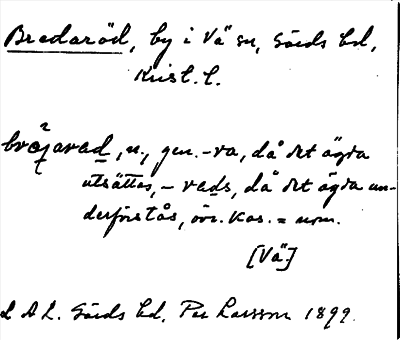 Bredaröd, by i Vä sn, Gärds hd,
Krist. l.
bræ̂javad, n., gen. -va, då det ägda
utsättes, - veds, då det ägda un-
derförstås, övr. kas. = nom.
[Vä]
L A L. Gärds hd. Per Larsson 1899.